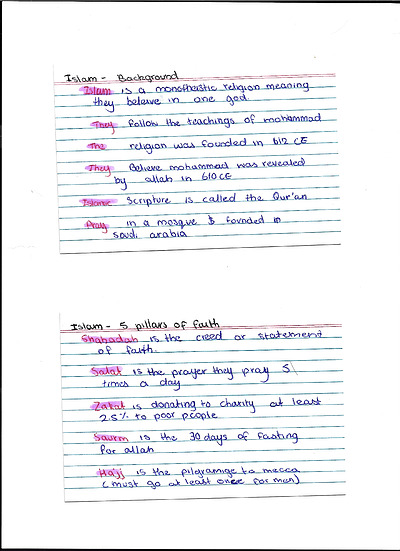 Islam - Background
Islam is a monotheistic religion meaning
they beleive in one god.
They follow the teachings of mohammad
The religion was founded in 612 CE
They Believe mohammad was revealed
by allah in 610 CE
Islamic Scripture is called the Qur'an
Pray in a mosque & founded in
saudi arabia
Islam - 5 pillars of faith
Shahadah is the creed or statement
of faith.
Salat is the prayer they pray 5
times a day
Zakat is donating to charity at least
2.5% to poor people
Sawm is the 30 days of fasting
for allah
Hajj is the pilgramige to mecca
(must go at least once for men)